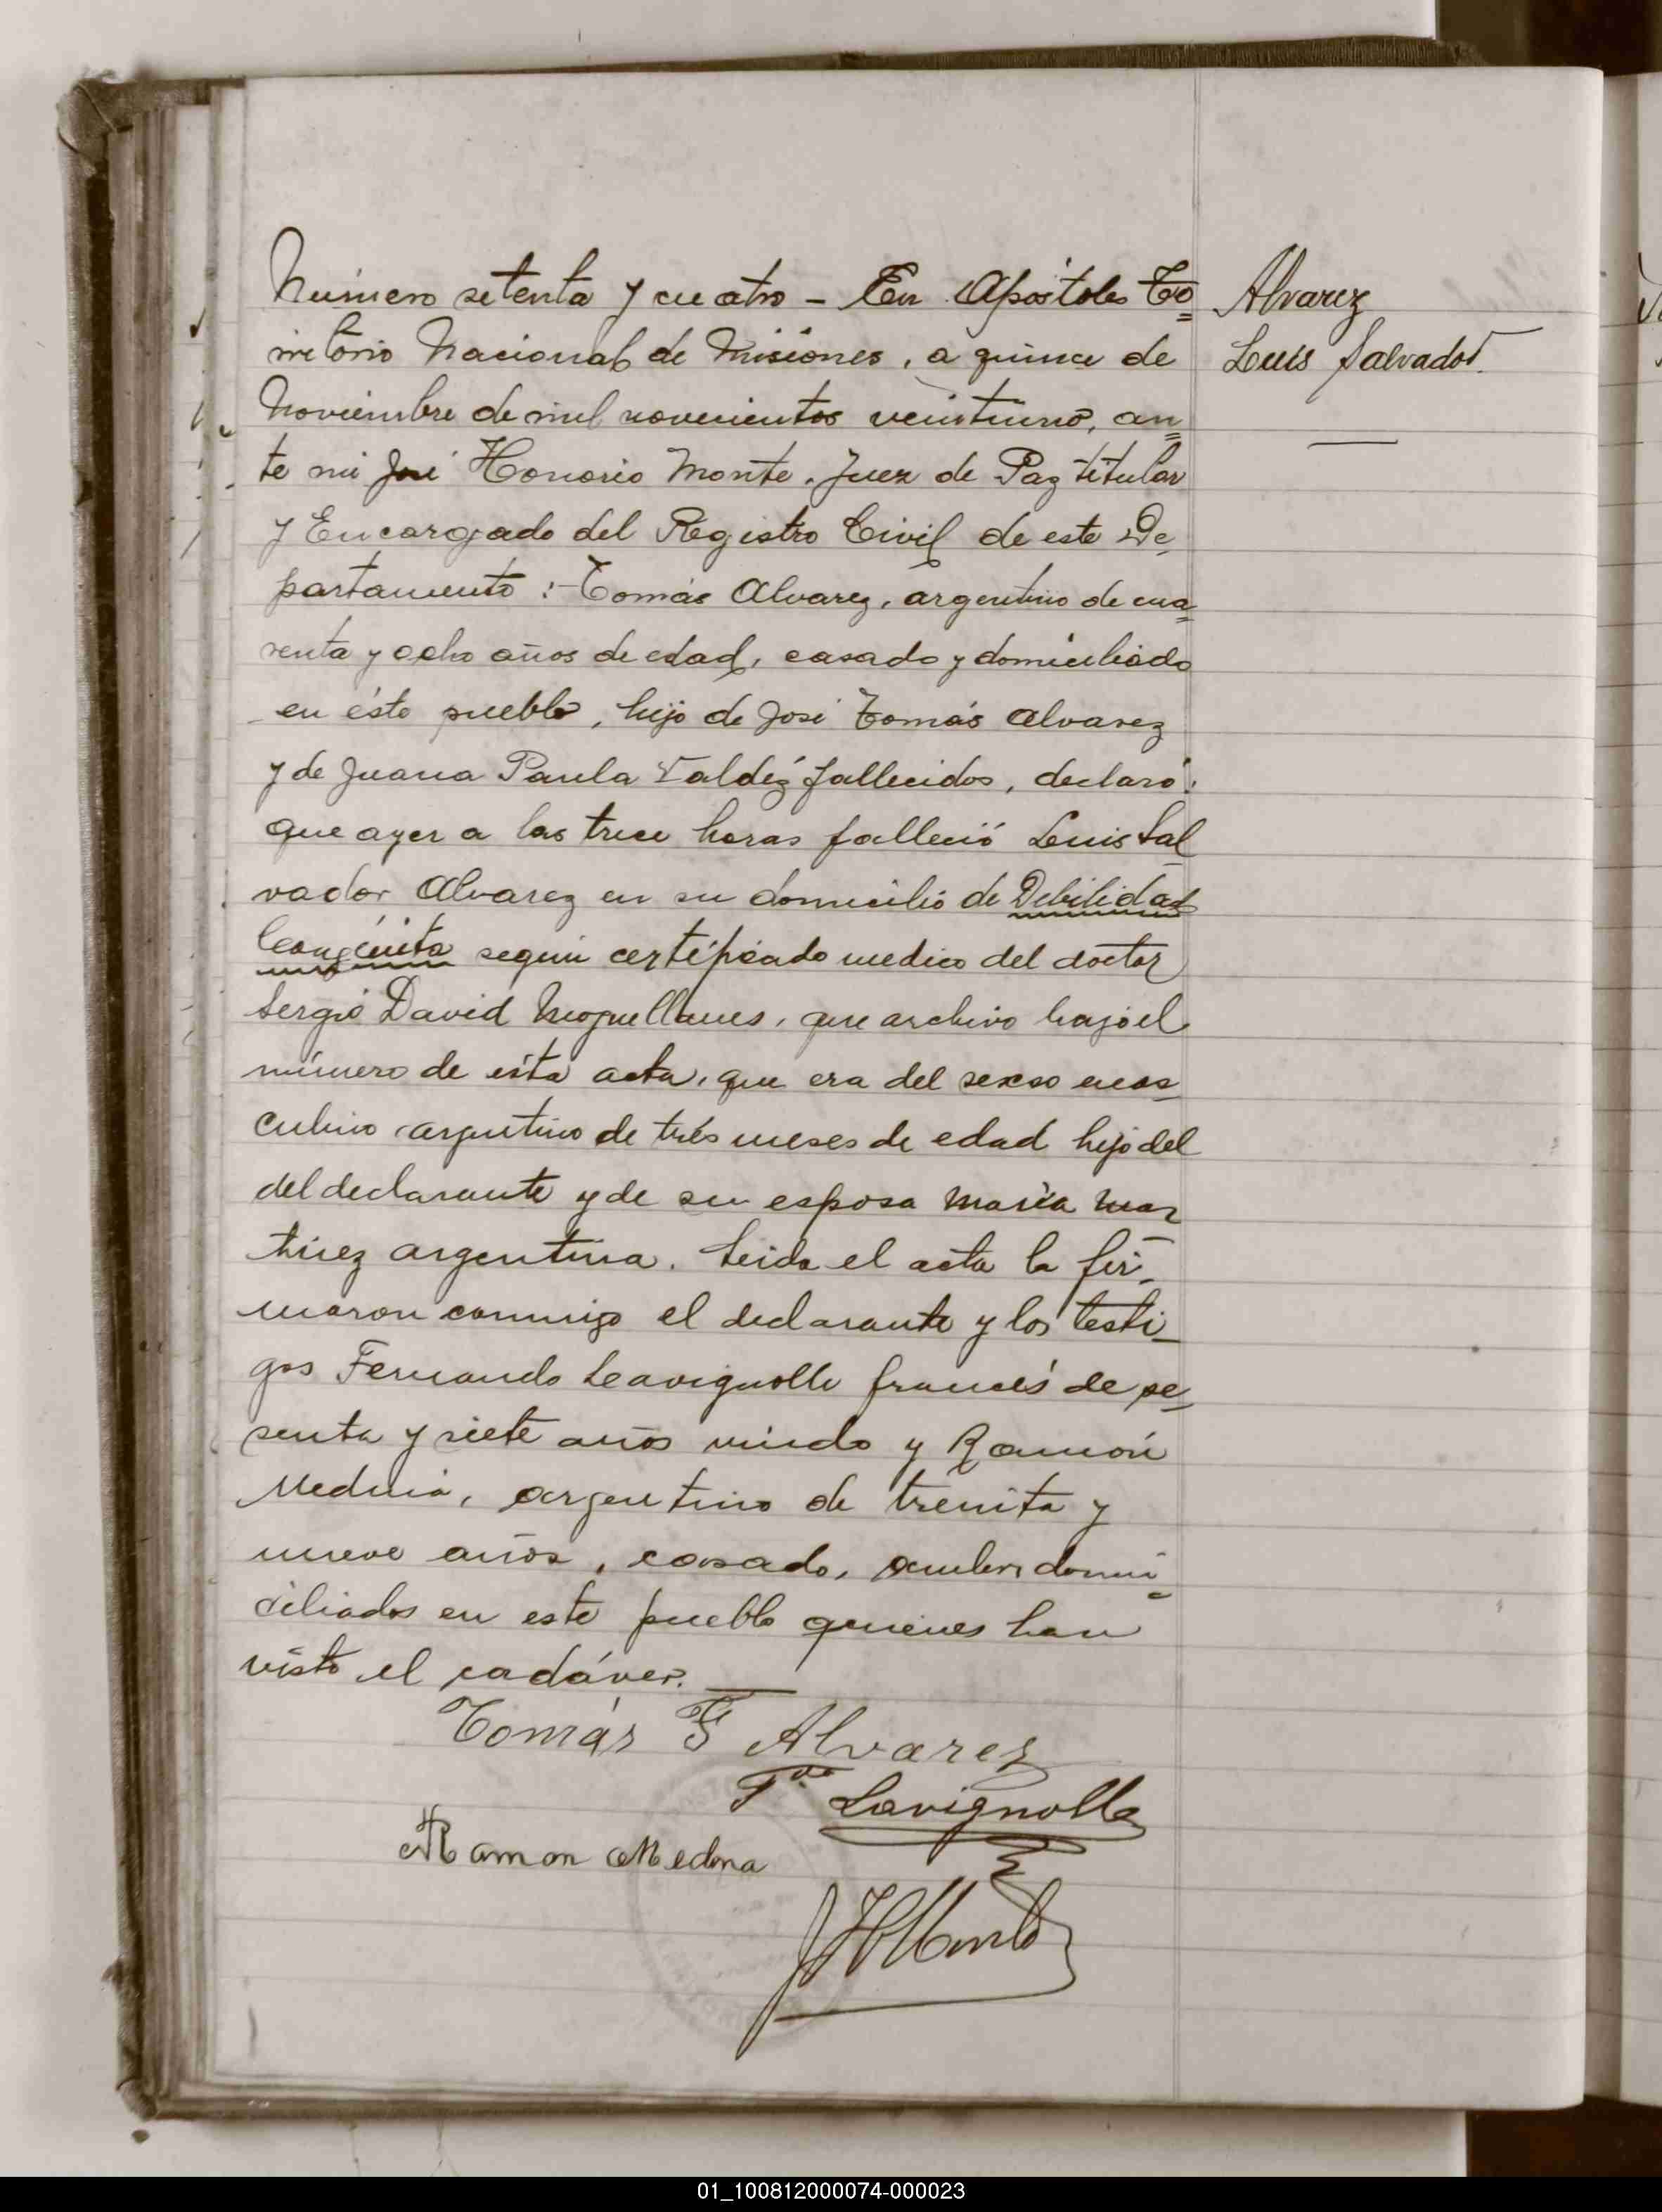 Número setenta y cuatro - En Apóstoles Te=
rritorio Nacional de Misiones, a quince de
Noviembre de mil novecientos veintiuno, an=
te mi José Honorio Monte, Juez de Paz titular
y Encargado del Registro Civil de este De=
partamento :- Tomás Alvarez, argentino de cua=
renta y ocho años de edad, casado y domiciliado
en éste pueblo, hijo de José Tomás Alvarez
y de Juana Paula Valdéz fallecidos, declaró:
que ayer a las trece horas falleció Luis Sal
vador Alvarez en su domicilio de Debilidad
Congénita según certificado medico del doctor
Sergio David Moguellanes, que archivo bajo el
número de ésta acta, que era del sexso mas=
culino argentino de trés meses de edad hijo del
del declarante y de su esposa María Mar
tinez argentina. Leida el acta la fir=
maron conmigo el declarante y los testi=
gos Fernando Leavignolle francés de se=
senta y siete años viudo y Ramón
Medina, argentino de treinta y
nueve años, casado, ambos domi=
ciliados en este pueblo quienes han
visto el cadáver.
Alvarez
Luis Salvador
Tomás Alvarez
Lavignolle
Ramon Medina
JHMonte
01_100812000074-000023